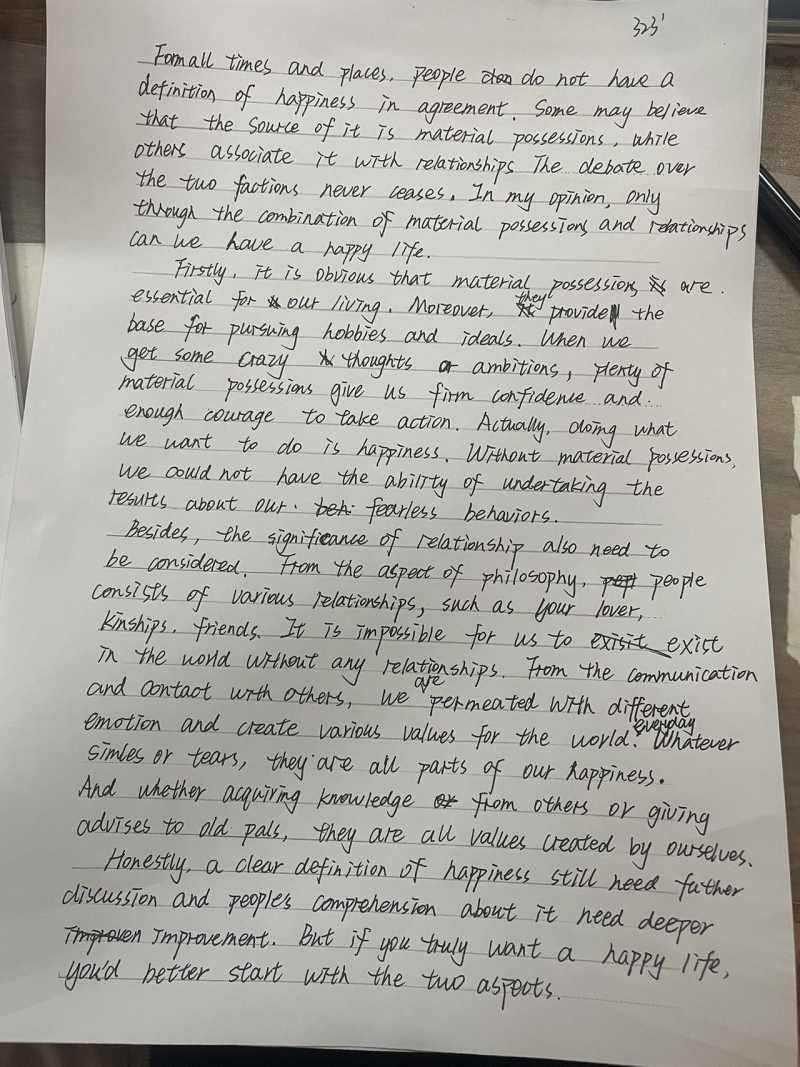 323'
Formall times and places. people do not have a
definition of happiness in agreement. Some may believe
that the source of it is material possessions, while
others associate it with relationships The debate over
the two factions never ceases. In my opinion, only
through the combination of material possessions and relationships
can we have a happy life.
Firstly, it is obvious that material possessions are.
essential for our living. Moreover, they provide the
base for pursuing hobbies and ideals. When we
get some crazy thoughts or ambitions, plenty of
material possessions give us firm confidence and
enough courage to take action. Actually, doing what
we want to do is happiness. Without material possessions,
we could not have the ability of undertaking the
results about our. fearless behaviors.
Besides, the significance of relationship also need to
be considered. From the aspect of philosophy, people
consists of various relationships, such as your lover,
kinships, friends. It is impossible for us to exist
in the world without any relationships. From the communication
and contact with others, we are permeated with different
emotion and create various values for the world everyday. Whatever
simles or tears, they are all parts of our happiness.
And whether acquiring knowledge from others or giving
advises to old pals, they are all values created by ourselves.
Honestly, a clear definition of happiness still need futher
discussion and people's comprehension about it need deeper
improvement. But if you truly want a happy life,
you'd better start with the two aspects.